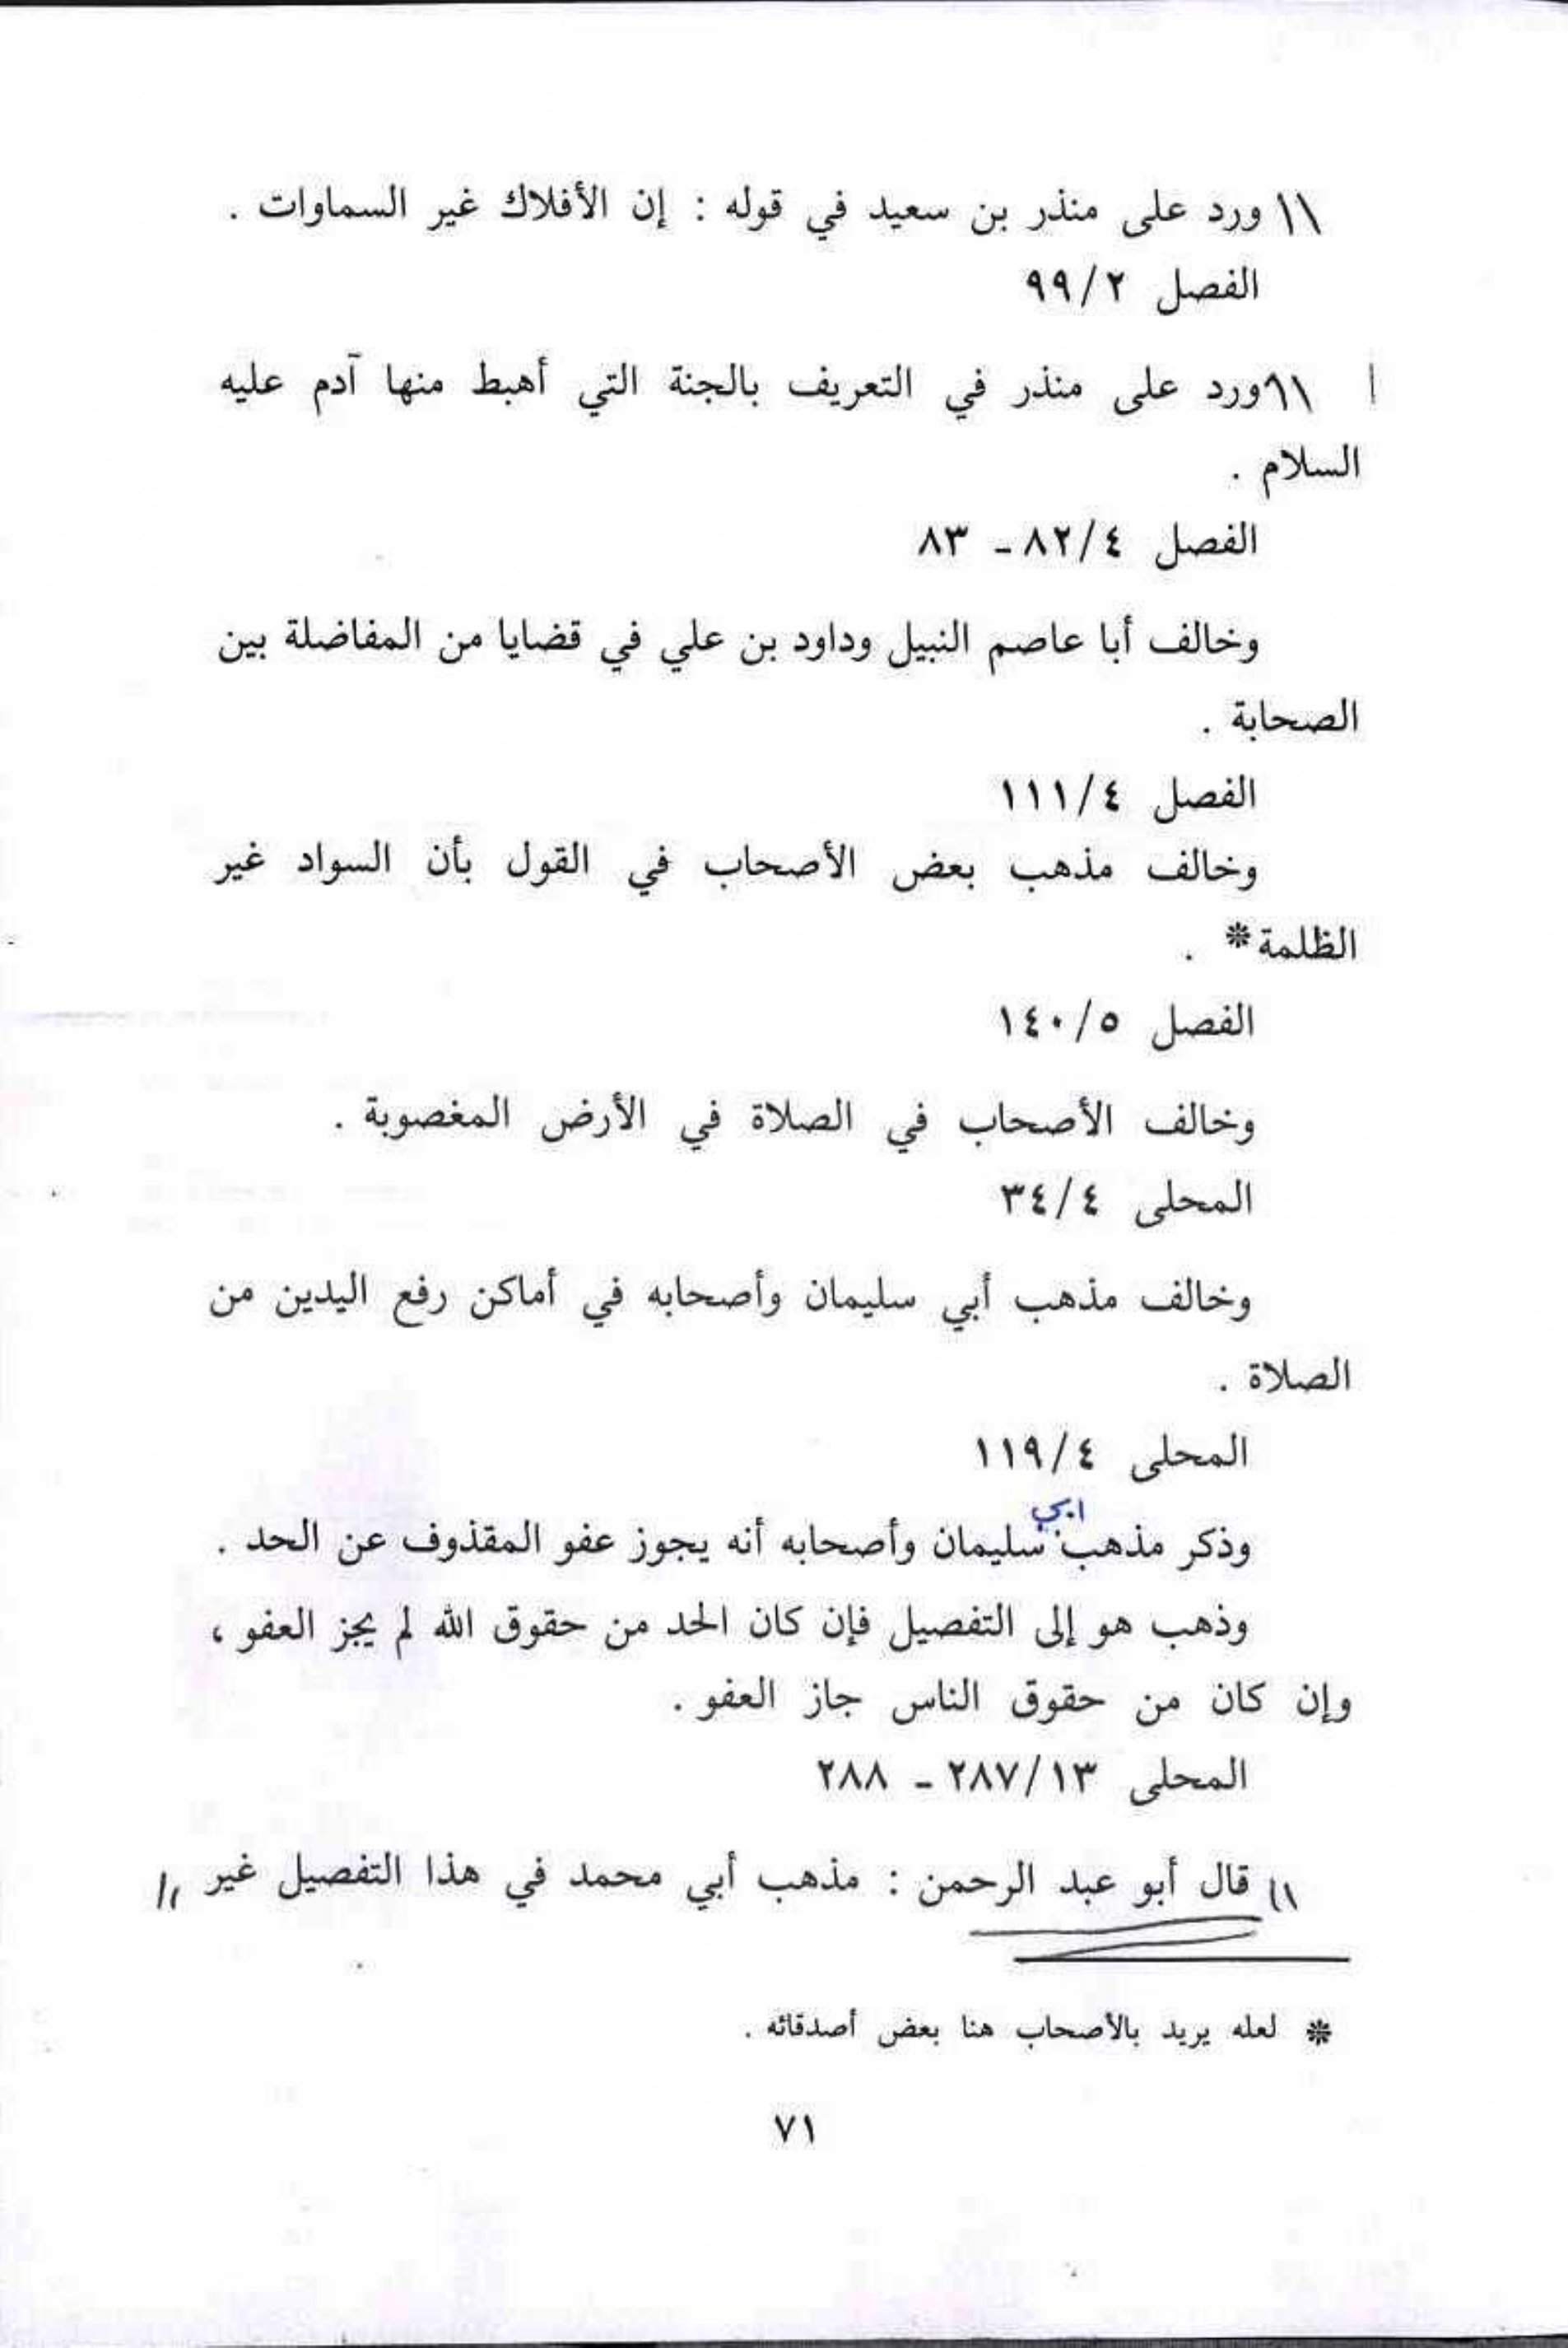 ورد على منذر بن سعيد في قوله : إن الأفلاك غير السماوات .
الفصل ٩٩/٢
ورد على منذر في التعريف بالجنة التي أهبط منها آدم عليه
السلام .
الفصل ٨٢/٤ - ٨٣
وخالف أبا عاصم النبيل وداود بن علي في قضايا من المفاضلة بين
الصحابة .
الفصل ١١١/٤
وخالف مذهب بعض الأصحاب في القول بأن السواد غير
الظلمة * .
الفصل ١٤٠/٥
وخالف الأصحاب في الصلاة في الأرض المغصوبة .
المحلى ٣٤/٤
وخالف مذهب أبي سليمان وأصحابه في أماكن رفع اليدين من
الصلاة .
المحلى ١١٩/٤
ابي
وذكر مذهب سليمان وأصحابه أنه يجوز عفو المقذوف عن الحد .
وذهب هو إلى التفصيل فإن كان الحد من حقوق الله لم يجز العفو ،
وإن كان من حقوق الناس جاز العفو .
المحلى ٢٨٧/١٣ - ٢٨٨
قال أبو عبد الرحمن : مذهب أبي محمد في هذا التفصيل غير
* لعله يريد بالأصحاب هنا بعض أصدقائه .
٧١